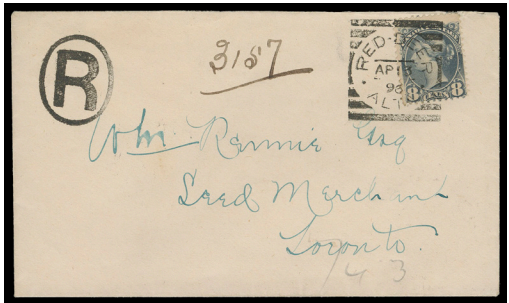 R
3157
RED-DEER
AP 13
96
ALT
8 CENTS 8
Wm Rennie Esq
Seed Merchant
Toronto.
43